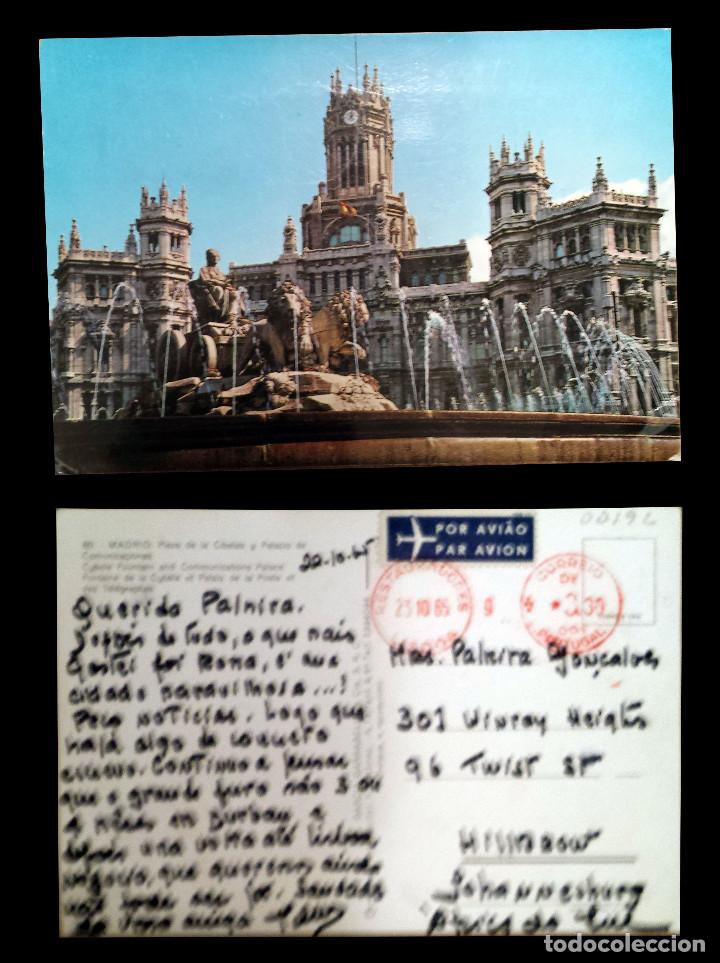 00192
POR AVIÃO
PAR AVION
80 - MADRID. Plaza de la Cibeles y Palacio de
Comunicaciones
Cybele Fountain and Communications Palace
Fontaine de la Cybèle et Palais de la Poste et
des Télégraphes
22-10-65
RESTAURADORES
23 10 65
LISBOA
CORREIO
DE
PORTUGAL
Querida Palmira.
de tudo, o que mais
gostei foi Roma, é uma
cidade maravilhosa...!
Peço notícias. Logo que
haja algo de concreto
escrevo. Continuo a pensar
que o grande furo são 3 ou
4 mêses em Durban, e
depois uma volta até Lisboa,
negócio, que queremos ainda
Saudades
da amiga
Mas. Palmira Gonçalves
301 Winray Heights
96 Twist ST
Hillbrow
Johannesburg
Africa do Sul
todocoleccion.net